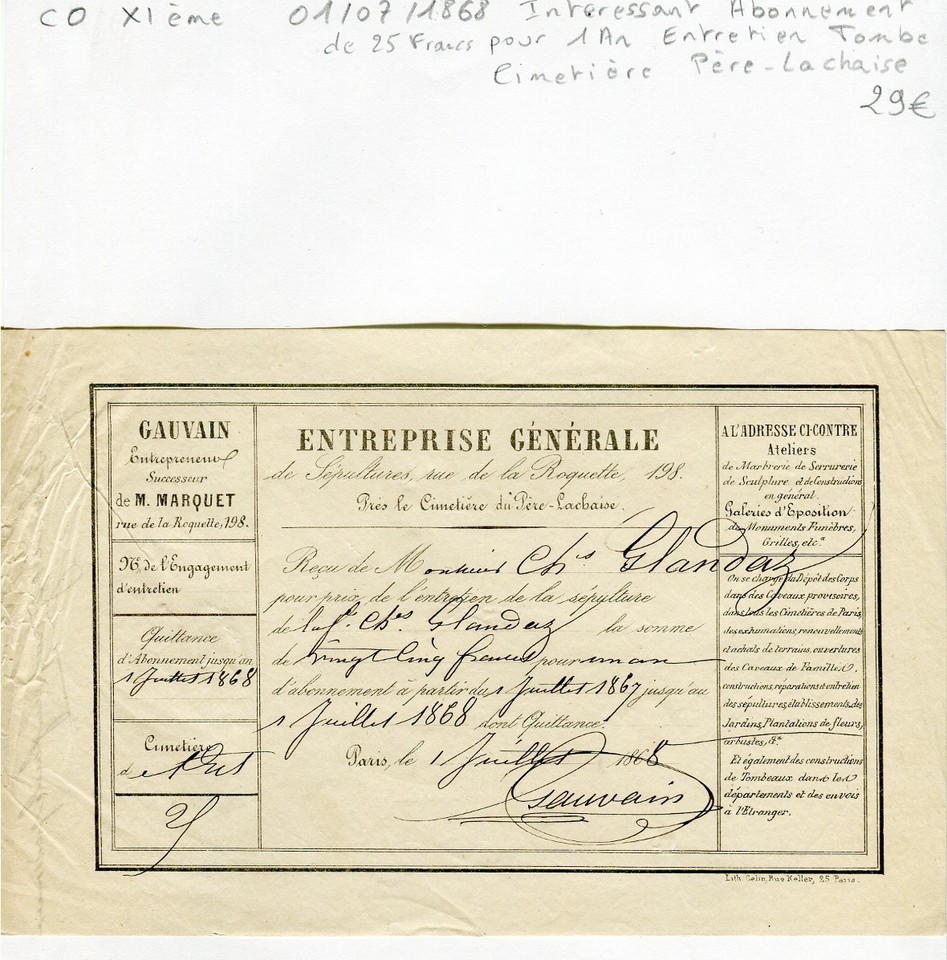 CO XIème 01/07/1868 Intéressant Abonnement
de 25 Francs pour 1 An Entretien Tombe
Cimetière Père-Lachaise
29€
GAUVAIN
Entrepreneur
Successeur
de M. MARQUET
rue de la Roquette, 198.
No. de l'Engagement
d'entretien
Quittance
d'Abonnement jusqu'au
1 Juillet 1868
Cimetière
de l'Est
25
ENTREPRISE GÉNÉRALE
de Sépultures, rue de la Roquette, 198.
Près le Cimetière du Père-Lachaise.
Reçu de Monsieur Chs Glandaz
pour prix de l'entretien de la sépulture
de la fe. Ches Glandaz la somme
de vingt cinq francs pour un an
d'abonnement à partir du 1 Juillet 1867 jusqu'au
1 Juillet 1868 dont Quittance
Paris, le 1 Juillet 1868
Gauvain
A L'ADRESSE CI-CONTRE
Ateliers
de Marbrerie de Serrurerie
de Sculpture et de Constructions
en général.
Galeries d'Eposition
de Monuments Funèbres,
Grilles, etc.a
On se charge du Dépôt des Corps
dans des Caveaux provisoires,
dans tous les Cimetières de Paris,
des exhumations, renouvellements
et achats de terrains, ouvertures
des Caveaux de Familles,
constructions, réparations et entretien
des sépultures, établissements des
Jardins, Plantations de fleurs,
arbustes, &a.
Et également des constructions
de Tombeaux dans les
départements et des envois
à l'Etranger.
Lith. Gelin, Rue Keller, 25 Paris.